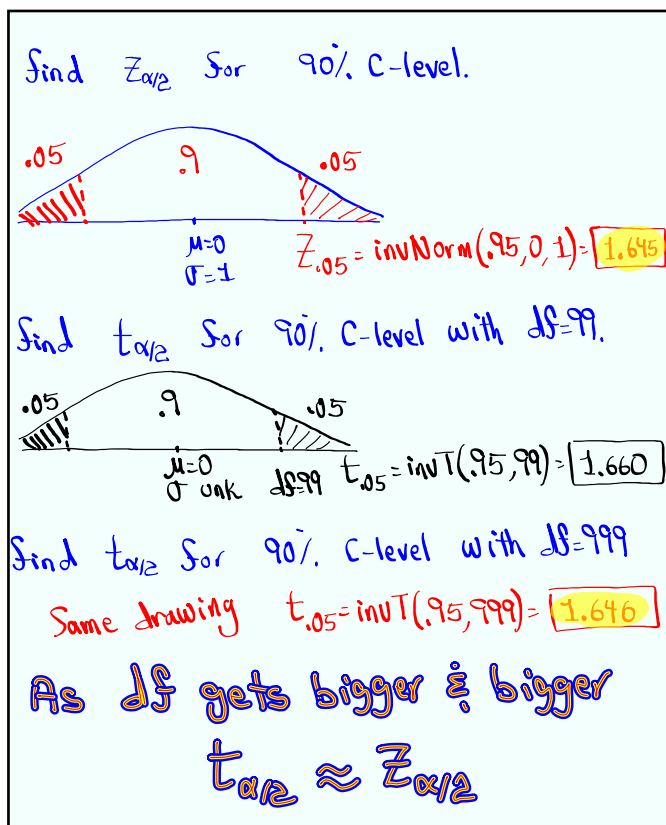 find Zα/2 for 90% C-level.
.05 .9 .05
μ=0
σ=1
Z.05 = invNorm(.95,0,1)= 1.645
find tα/2 for 90% C-level with df=99.
.05 .9 .05
μ=0
σ unk df=99 t.05 = invT(.95,99)= 1.660
find tα/2 for 90% C-level with df=999
Same drawing t.05=invT(.95,999)= 1.646
As df gets bigger & bigger
tα/2 ≈ Zα/2